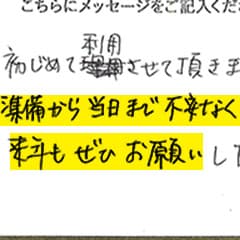 こちらにメッセージをご記入くだ
利用
初めてさせて頂きま
準備から当日まで不安なく
来年もぜひお願いし